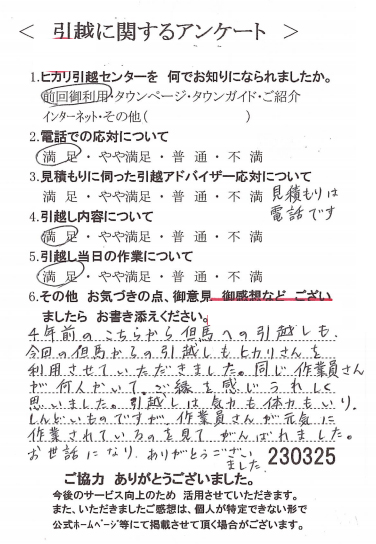 ＜ 引越に関するアンケート ＞
1.ヒカリ引越センターを 何でお知りになられましたか。
前回御利用・タウンページ・タウンガイド・ご紹介
インターネット・その他( )
2.電話での応対について
満 足・やや満足・普 通・不 満
3.見積もりに伺った引越アドバイザー応対について
満 足・やや満足・普 通・不 満 見積もりは
電話です
4.引越し内容について
満 足・やや満足・普 通・不 満
5.引越し当日の作業について
満 足・やや満足・普 通・不 満
6.その他 お気づきの点、御意見 御感想など ござい
ましたら お書き添えください。
4年前のこちらから但馬への引越しも、
今回の但馬からの引越しもヒカリさんを
利用させていただきました。同じ作業員さん
が何人かいて、ご縁を感じうれしく
思いました。引越しは気力も体力もいり、
しんどいものですが、作業員さんが元気に
作業されているのを見て がんばれました。
お世話になり、ありがとうござい
ました。 230325
ご協力 ありがとうございました。
今後のサービス向上のため 活用させていただきます。
また、いただきましたご感想は、個人が特定できない形で
公式ホームページ等にて掲載させて頂く場合がございます。